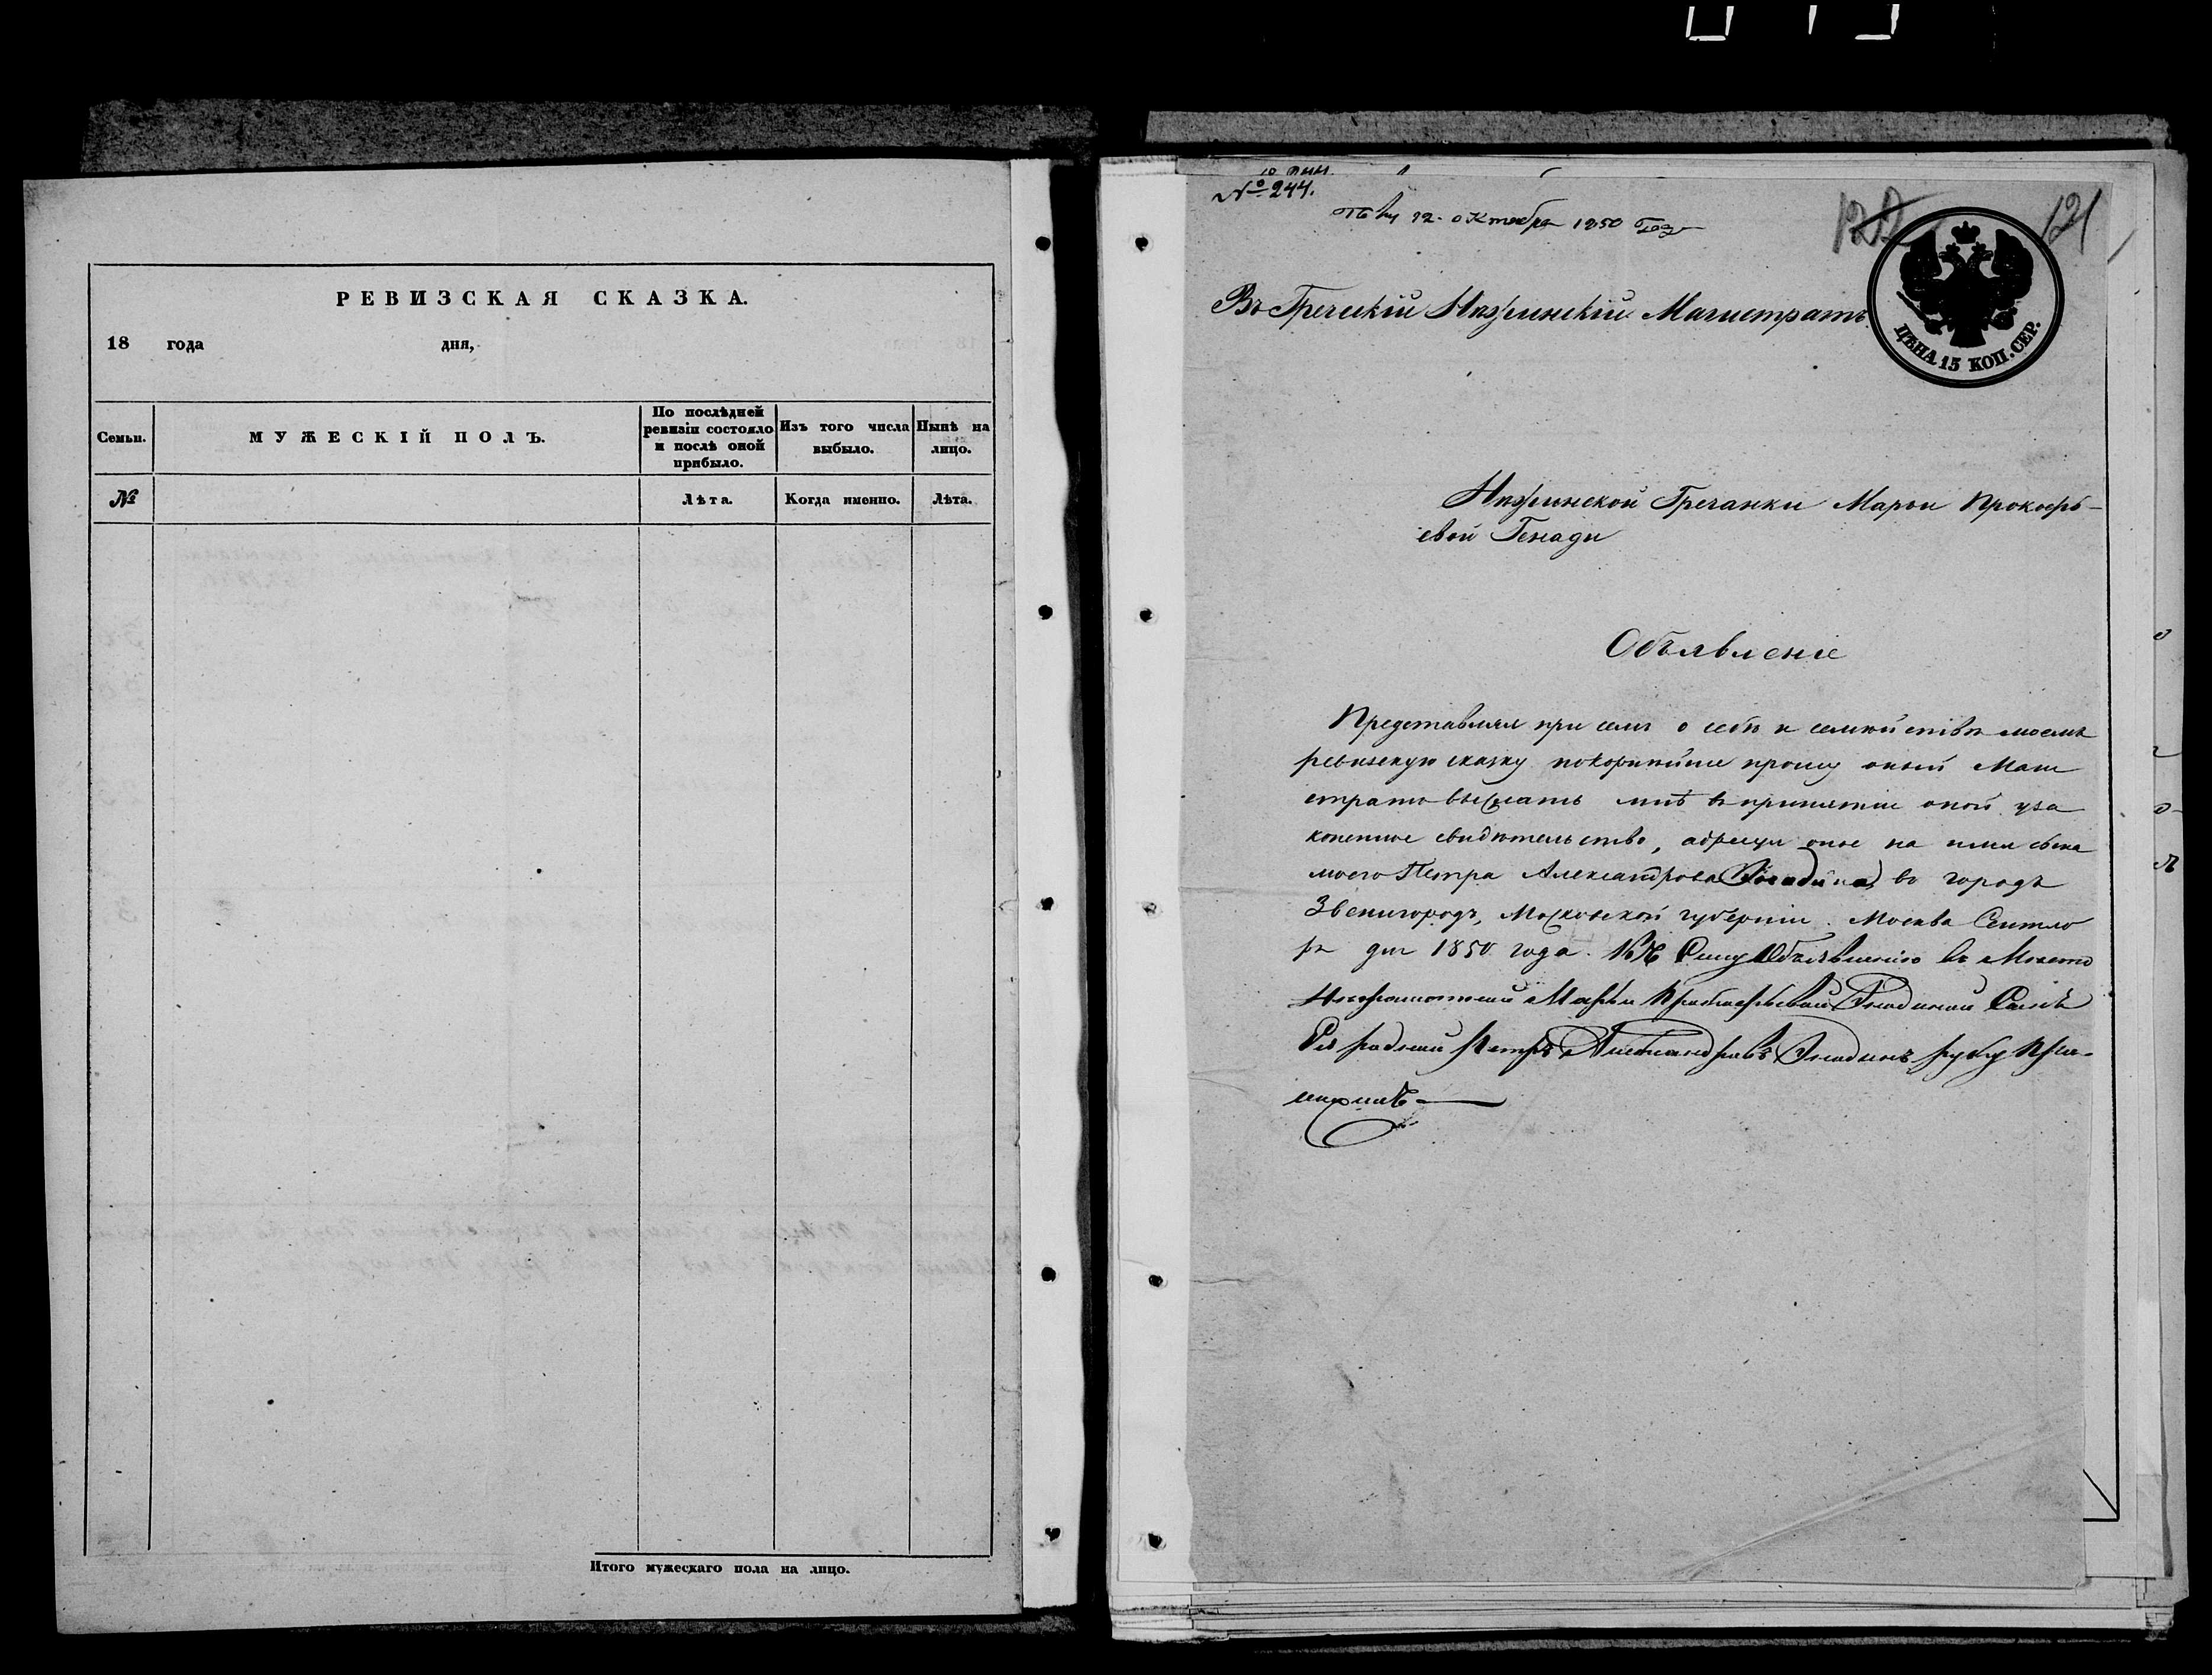 РЕВИЗСКАЯ СКАЗКА.
18 года дня,
Семьи.
МУЖЕСКІЙ ПОЛЪ.
По послѣдней
ревизіи состояло
и послѣ оной
прибыло.
Изъ того числа
выбыло.
Нынѣ на
лицо.
№
Лѣта.
Когда именно.
Лѣта.
Итого мужескаго пола на лицо.
№ 244.
12 октября 1850 года
121
Въ Греческій Нѣжинскій Магистратъ
ЦѢНА 15 КОП. СЕР.
Нѣжинской Гречанки Марьи Прокофь-
евой Генади
Объявленіе
Представляя при семъ о себѣ и семействѣ моемъ
ревизскую сказку покорнѣйше прошу оный Маги
стратъ выслать мнѣ въ принятіи оной уза
коненное свидѣтельство, адресуя оное на имя сына
моего Петра Александрова во городъ
Звенигородъ, Московской губерніи. Москва Сентяб
ря дня 1850 года. Къ Сему Объявленію въ Место
Неграмотной Марьи Прокофьевой Сынъ
Ея родной Петръ Александровъ руку При-
ложилъ